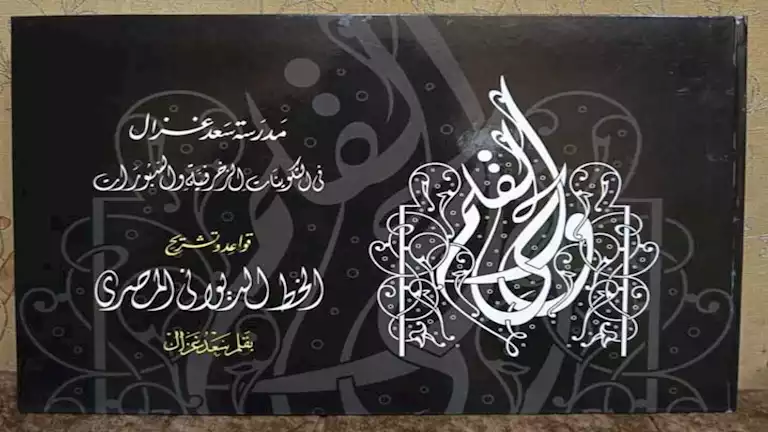 مدرسة سعد غزال
في التكوينات الزخرفية والسبورات
قواعد وتشريح
الخط الديواني المصري
بقلم سعد غزال
وحي القلم